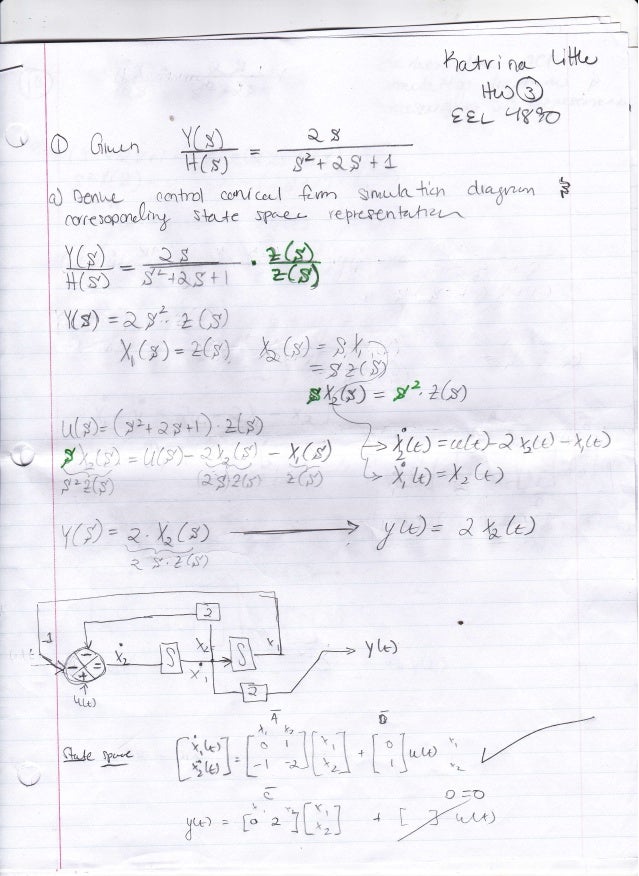 Katrina Little
HW ③
EEL 4890
① Given Y(s)/H(s) = 2s / s² + 2s + 1
a) Derive control conical form simulation diagram &
corresoponding state space representation
Y(s)/H(s) = 2s / s²+2s+1 · Z(s)/Z(s)
Y(s) = 2s² · Z(s)
X₁(s) = Z(s) X₂(s) = s X₁
= s Z(s)
s X₂(s) = s² · Z(s)
U(s) = (s² + 2s + 1) · Z(s)
s X₂(s) = U(s) - 2X₂(s) - X₁(s) → ẋ₂(t) = u(t) - 2x₂(t) - x₁(t)
s²Z(s) (2s)Z(s) Z(s) → ẋ₁(t) = x₂(t)
Y(s) = 2 · X₂(s) → y(t) = 2x₂(t)
2 s · Z(s)
2
1 - - = + ẋ₂ ∫ x₂ ẋ₁ ∫ x₁ → y(t)
2
u(t)
A B
State space [ẋ₁(t) ẋ₂(t)] = [0 1 -1 -2] [x₁ x₂] + [0 1] u(t) x₁ x₂ ✓
C 0=0
y(t) = [0 2] [x₁ x₂] + [ ] u(t)